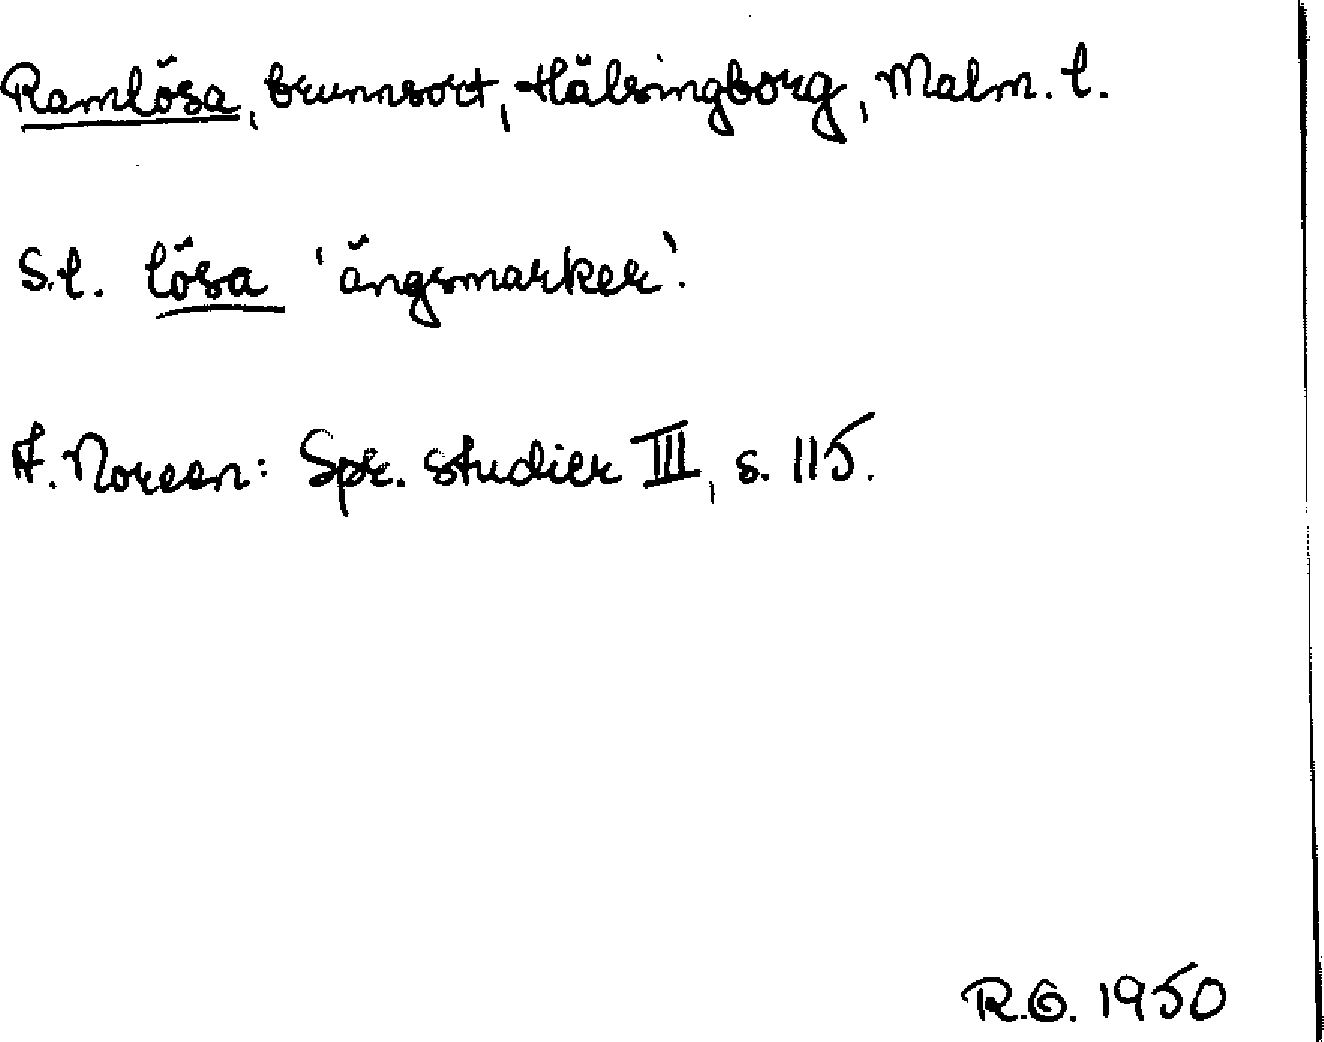 Ramlösa, brunnsort, Hälsingborg, Malm. l.
S.l. lösa 'ängsmarker'.
A. Noreen: Spr. studier III, s. 115.
R.G. 1950